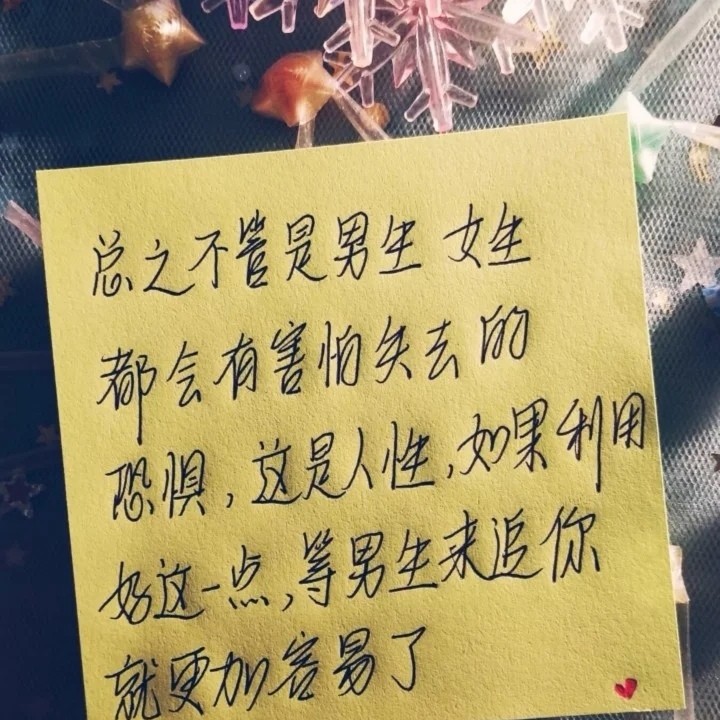 总之不管是男生 女生
都会有害怕失去的
恐惧,这是人性,如果利用
好这一点,等男生来追你
就更加容易了